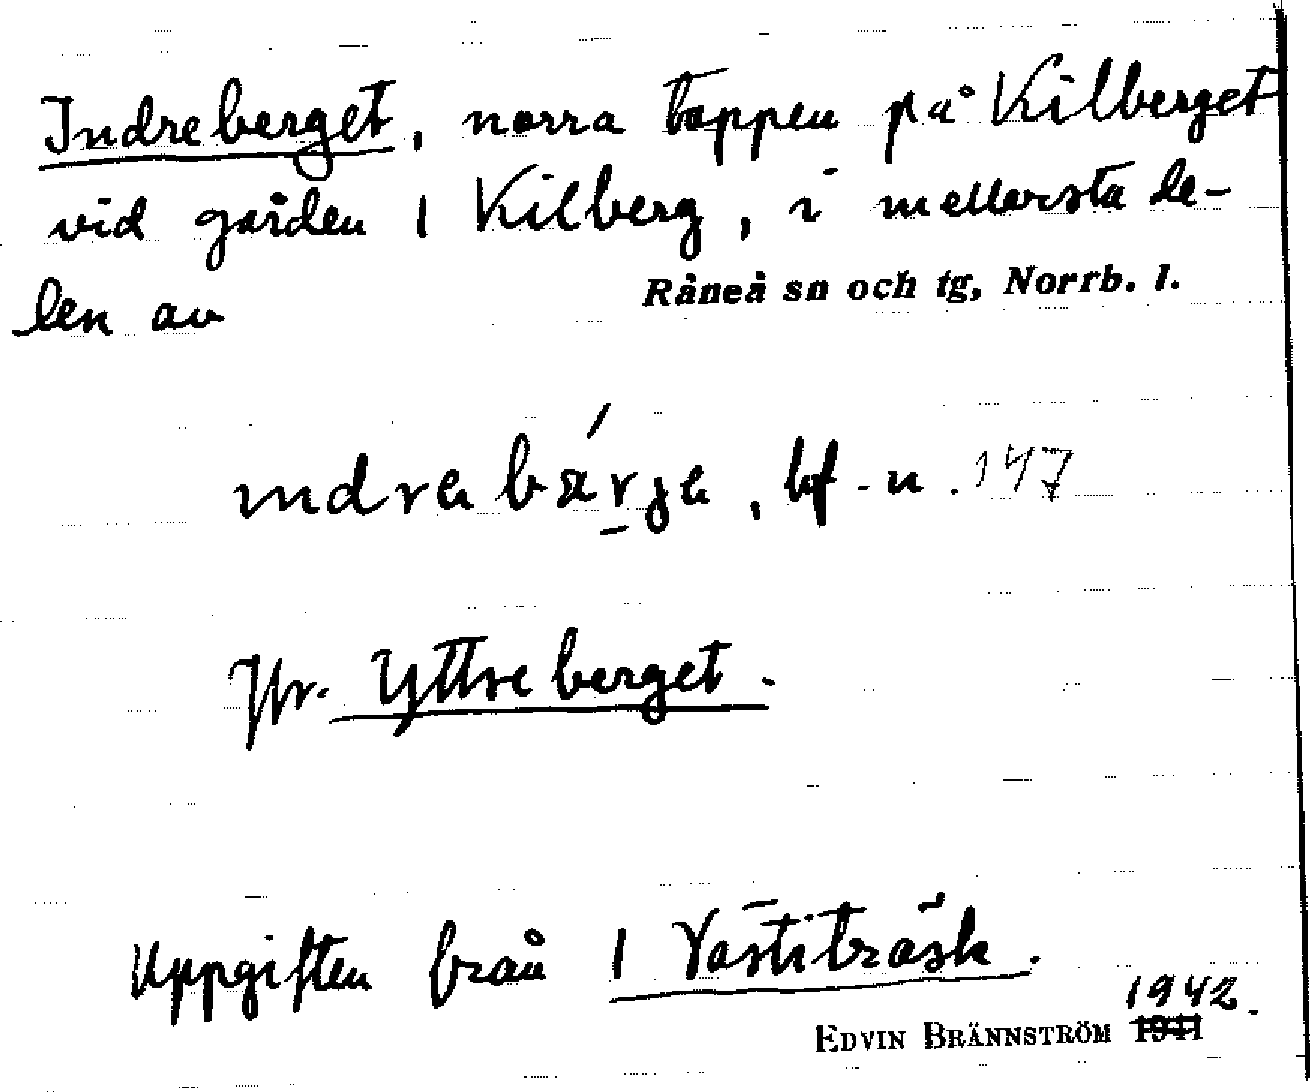 Indreberget, norra toppen på Kilberget
vid gården 1 Kilberg, i mellersta de-
len av
Råneå sn och tg, Norrb. l.
bf. n. 147
Jfr. Yttreberget.
Uppgiften från 1 Västiträsk.
EDVIN BRÄNNSTRÖM 1941 1942.